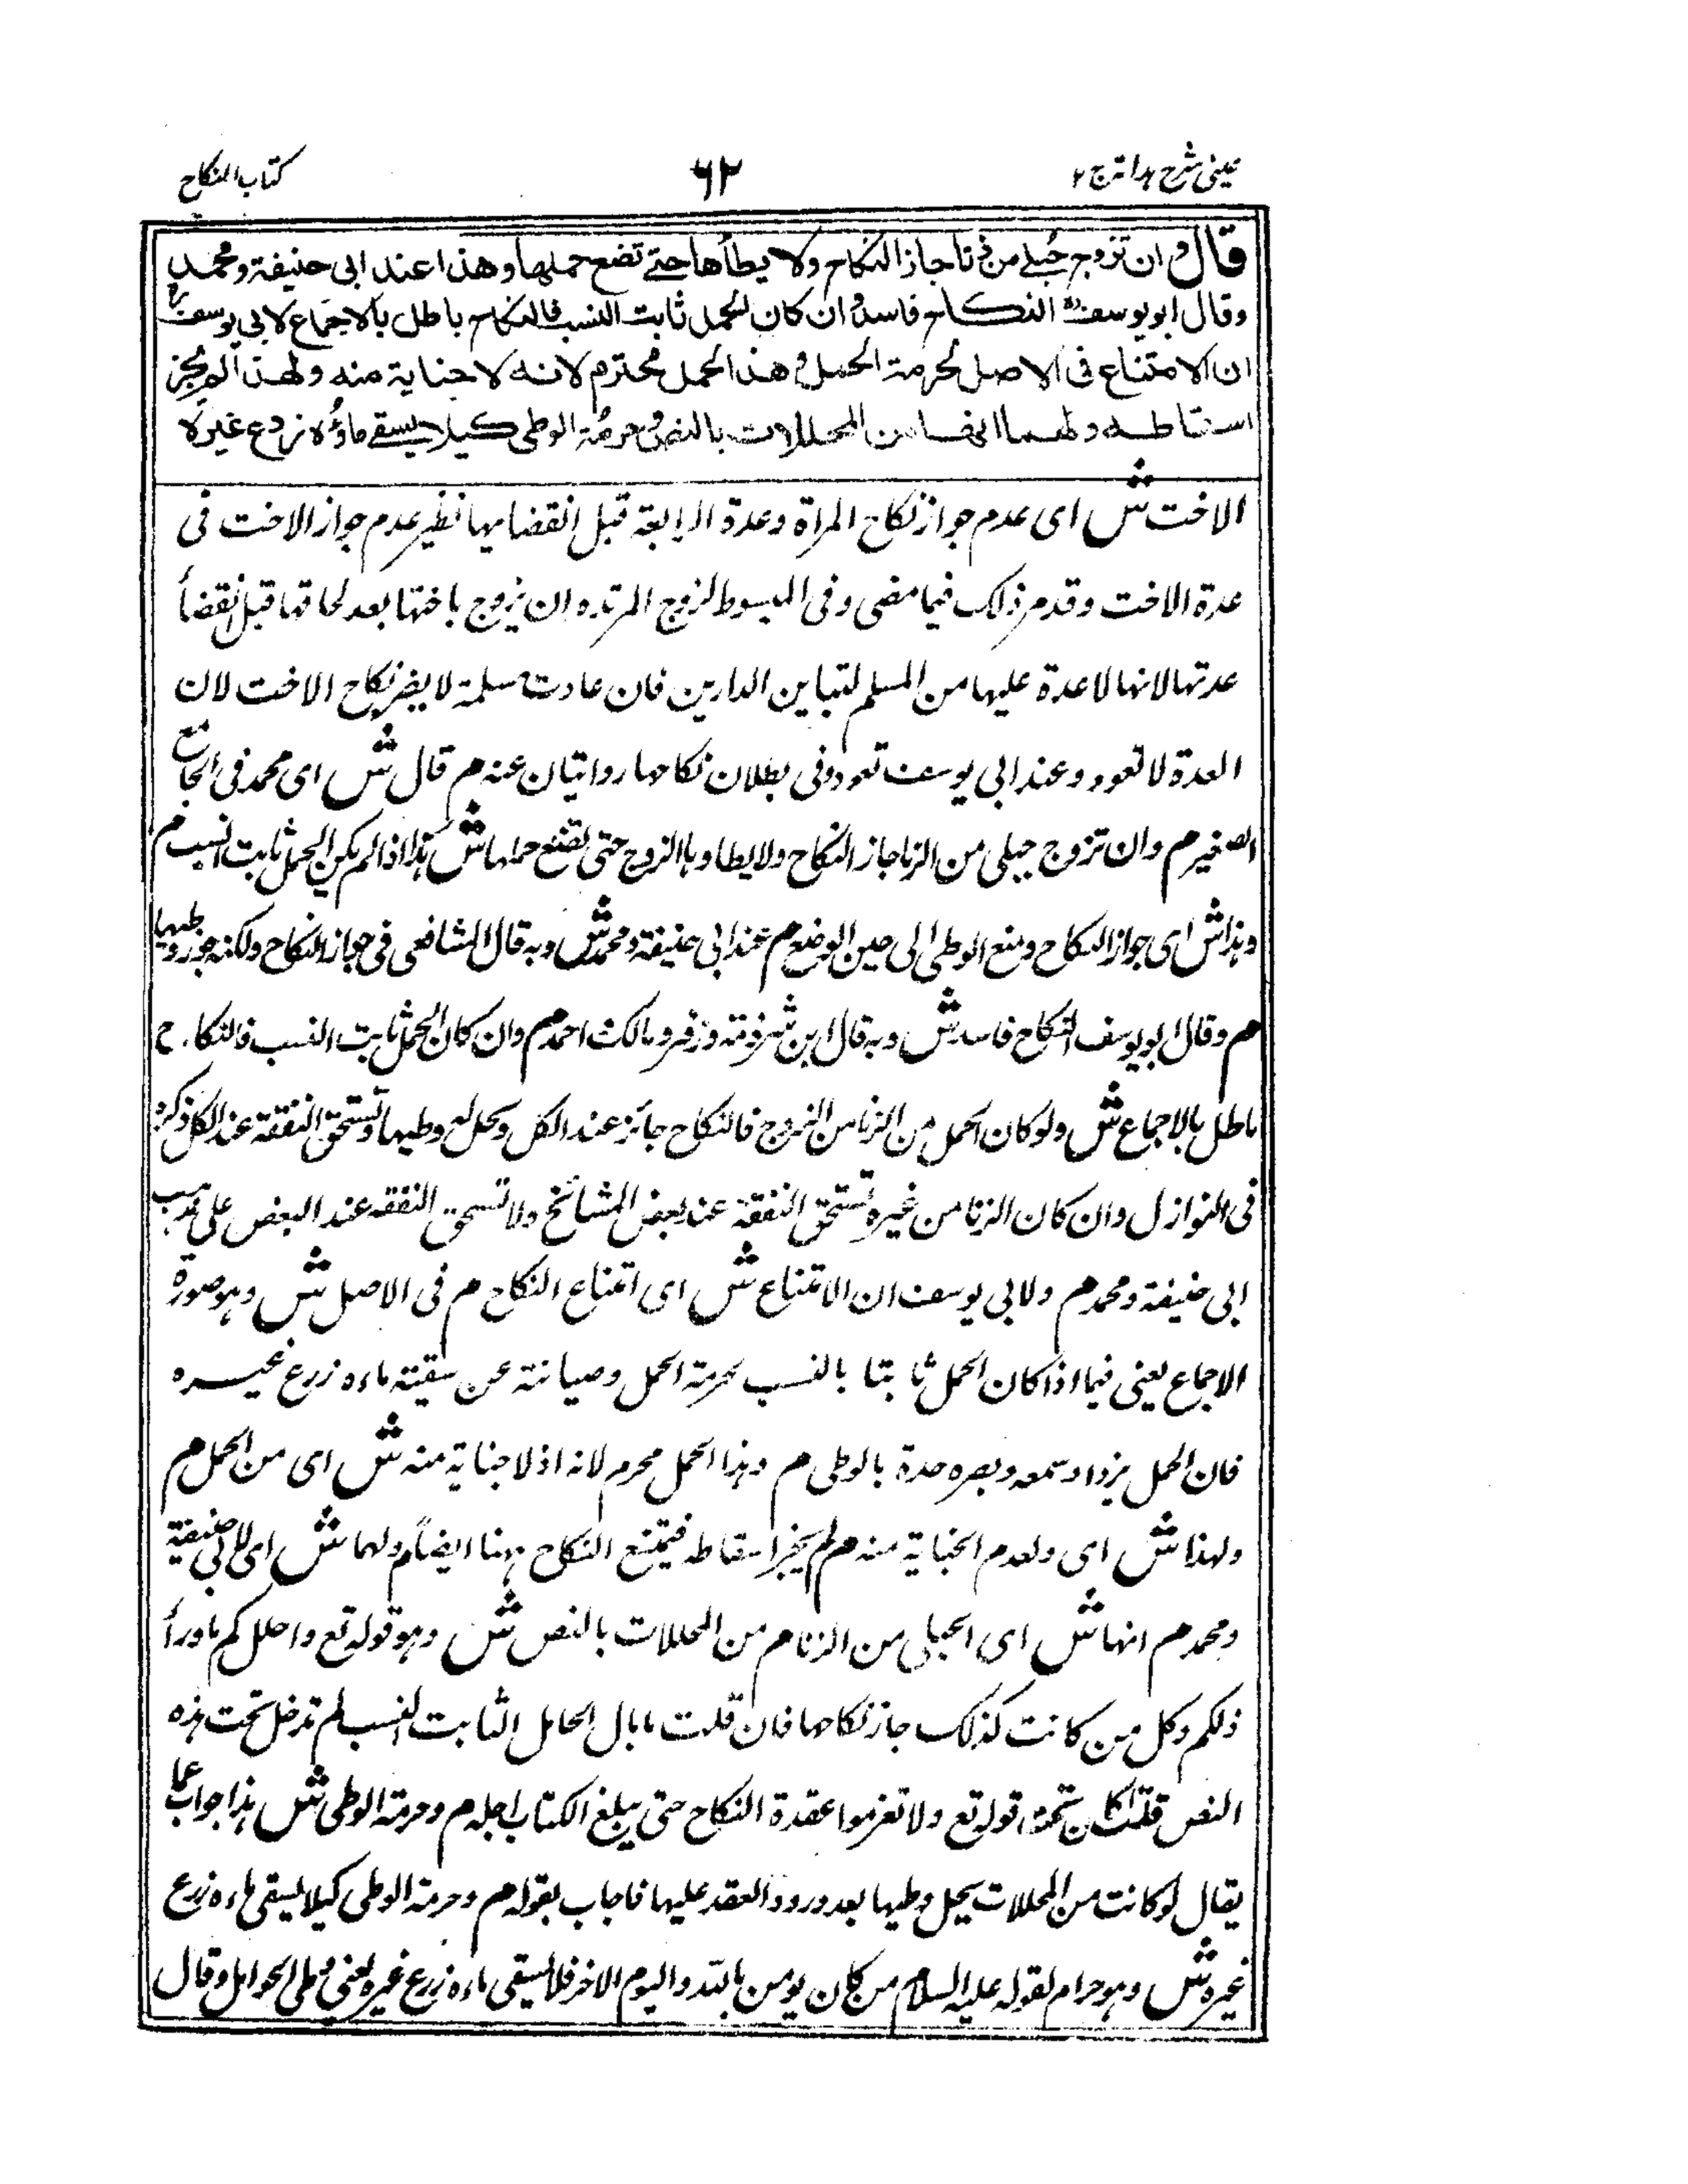 عینی شرح هدایة ج ۲
۶۲
کتاب النکاح
قال وان تزوج حبلی من زنا جاز النکاح ولا یطأها حتے تضع حملها وهذا عند ابی حنیفة ومحمد
وقال ابویوسفؒ النکاح فاسد وان کان الحمل ثابت النسب فالنکاح باطل بالاجماع لابی یوسفؒ
ان الامتناع فی الاصل لحرمة الحمل وهذا الحمل محترم لانه لا جنایة منه ولهذا لم یجز
اسقاطه ولهما انها من المحللات بالنص وحرمة الوطی کیلا یسقے ماؤه زرع غیره
الاخت ش ای عدم جواز نکاح المراة وعدة الرابعة قبل انقضایها نظیر عدم جواز الاخت فی
عدة الاخت وقد مر ذلک فیما مضی وفی المبسوط لزوج المرتده ان یزوج باختها بعد لحاقها قبل انقضأ
عدتها لانها لا عدة علیها من المسلم لتباین الدارین فان عادت مسلمة لا یضر نکاح الاخت لان
العدة لا تعود وعند ابی یوسف تعود وفی بطلان نکاحها روایتان عنه م قال ش ای محمد فی الجامع
الصغیر م وان تزوج حبلی من الزنا جاز النکاح ولا یطاوها الزوج حتی تضع حملها ش هذا اذا لم یکن الحمل ثابت النسب م
وهذا ش ای جواز النکاح ومنع الوطی الی حین الوضع م عند ابی حنیفة ومحمد ش وبه قال الشافعی فی جواز النکاح ولکنه جوز وطیها
م وقال ابویوسف النکاح فاسد ش وبه قال ابن شبرمة وزفر ومالک احمد م وان کان الحمل ثابت النسب فالنکاح
باطل بالاجماع ش ولو کان الحمل من الزنا من الزوج فالنکاح جائز عند الکل ویحل له وطیها وتستحق النفقة عند الکل ذکره
فی النوازل وان کان الزنا من غیره تستحق النفقة عند بعض المشائخ ولا تستحق النفقة عند البعض علی مذهب
ابی حنیفة ومحمد م ولابی یوسف ان الامتناع ش ای امتناع النکاح م فی الاصل ش وهو صورة
الاجماع یعنی فیما اذا کان الحمل ثابتا بالنسب لحرمة الحمل وصیانته عن سقیته ماءه زرع غیره
فان الحمل یزداد سمعه وبصره حدة بالوطی م وهذا الحمل محرم لانه اذ لا جنایة منه ش ای من الحمل م
ولهذا ش ای ولعدم الجنایة منه م لم یجز اسقاطه فیمتنع النکاح ههنا ایضاً م ولهما ش ای لابی حنیفة
ومحمد م انها ش ای الحبلی من الزنا م من المحللات بالنص ش وهو قوله تع واحل لکم ماورأ
ذلکم وکل من کانت کذلک جاز نکاحها فان قلت مابال الحامل الثابت النسب لم تدخل تحت هذه
النص قلت قوله تع ولا تعزموا عقدة النکاح حتی یبلغ الکتاب اجله م وحرمة الوطی ش هذا جواب عما
یقال لو کانت من المحللات یحل وطیها بعد ورود العقد علیها فاجاب بقوله م وحرمة الوطی کیلا یسقی ماءه زرع
غیره ش وهو حرام لقوله علیه السلام من کان یومن بالله والیوم الاخر فلا یسقی ماءه زرع غیره یعنی وطی الحوامل وقال